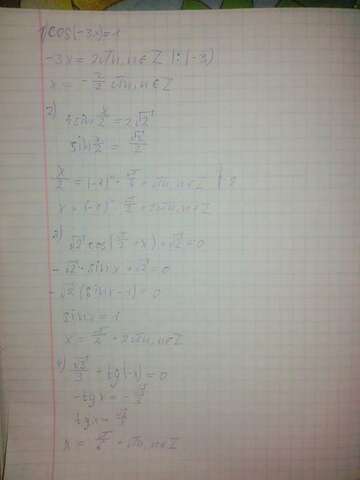 1) cos(-3x)=1
-3x = 2πn, n∈Z |:(-3)
x = -2/3 πn, n∈Z
2)
4sin x/2 = 2√2
sin x/2 = √2/2
x/2 = (-1)ⁿ · π/4 + πn, n∈Z |·2
x = (-1)ⁿ · π/2 + 2πn, n∈Z
3)
√2 cos(π/2 + x) + √2 = 0
-√2 · sinx + √2 = 0
-√2 (sinx - 1) = 0
sinx = 1
x = π/2 + 2πn, n∈Z
4) √3/3 + tg(-x) = 0
-tgx = -√3/3
tgx = √3/3
x = π/6 + πn, n∈Z